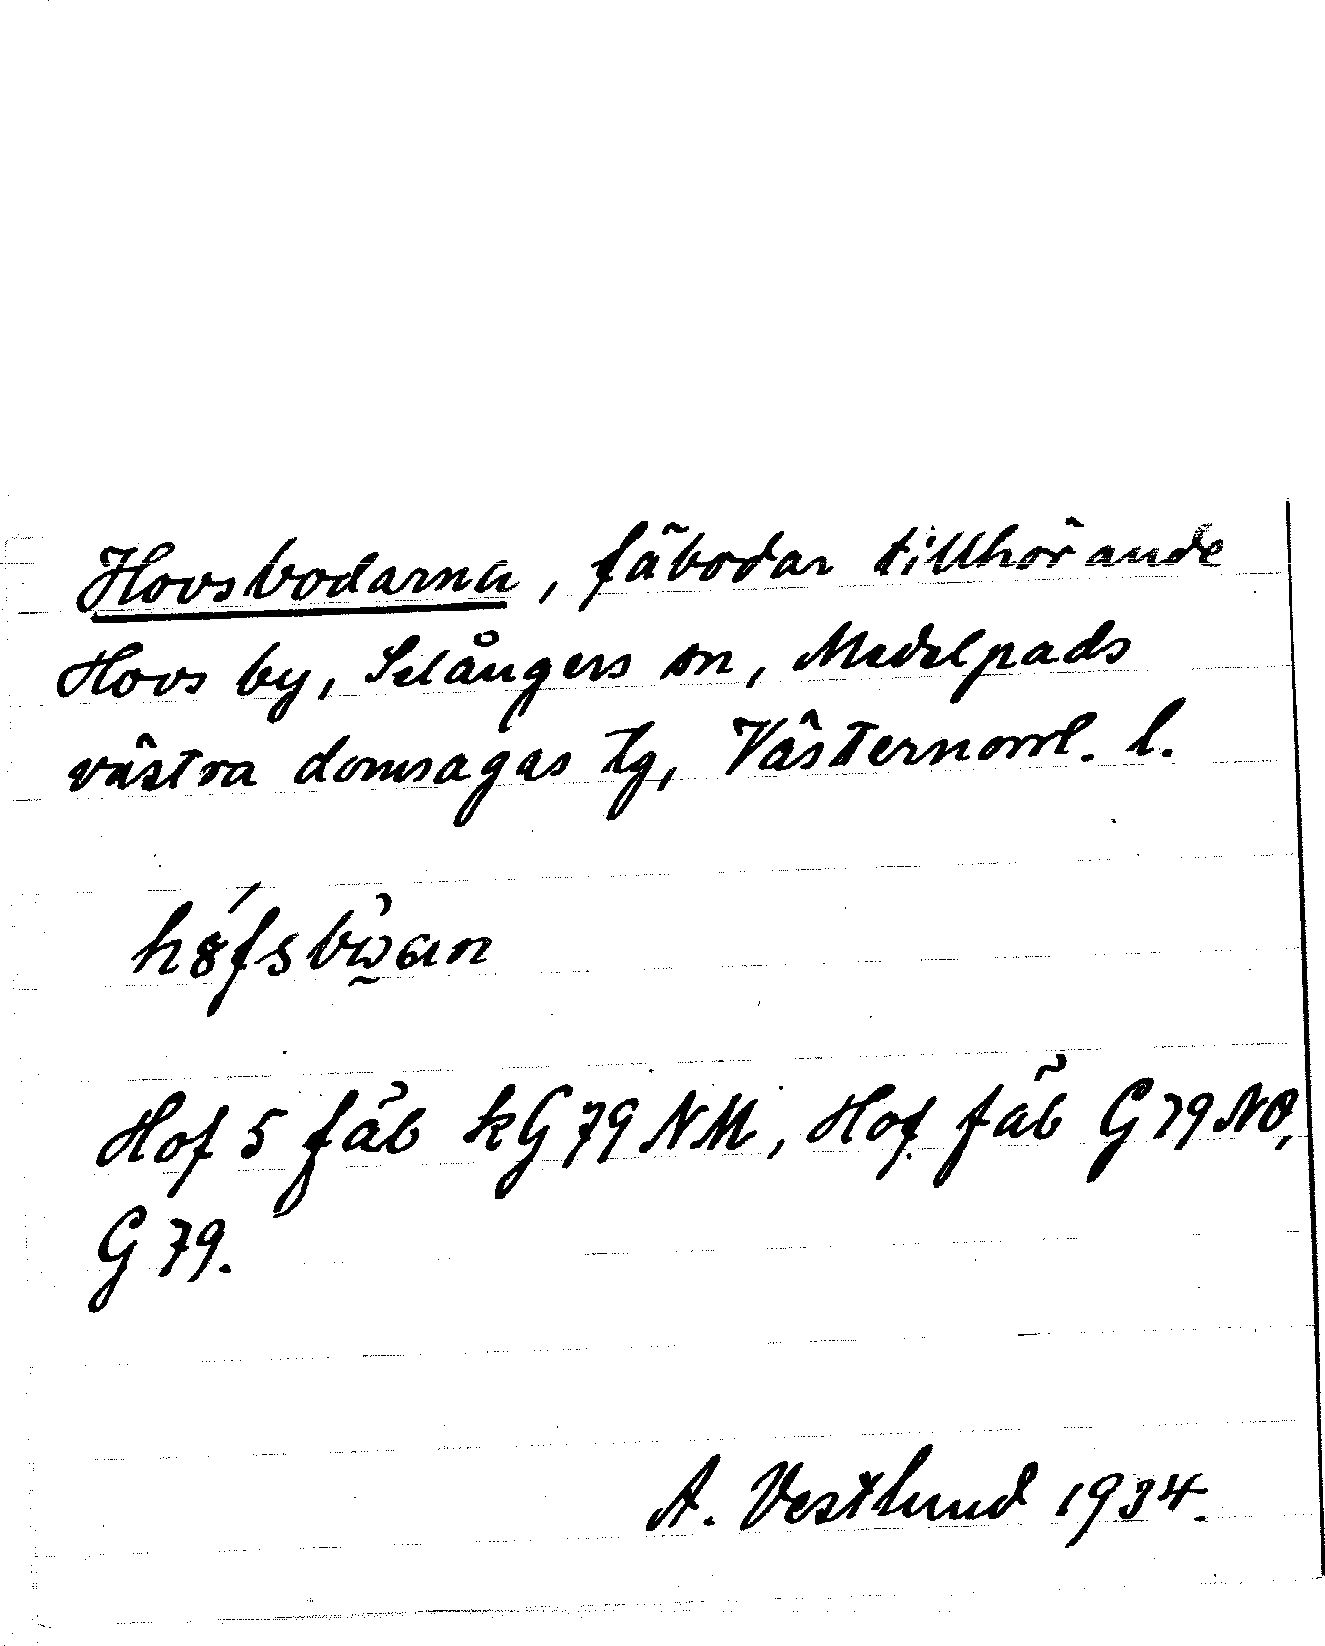 Hovsbodarna, fäbodar tillhörande
Hovs by, Selångers sn, Medelpads
västra domsagas tg, Västernorrl. l.
Hof 5 fäb kG79NM, Hof fäb G79NO,
G79.
A. Vestlund 1934.